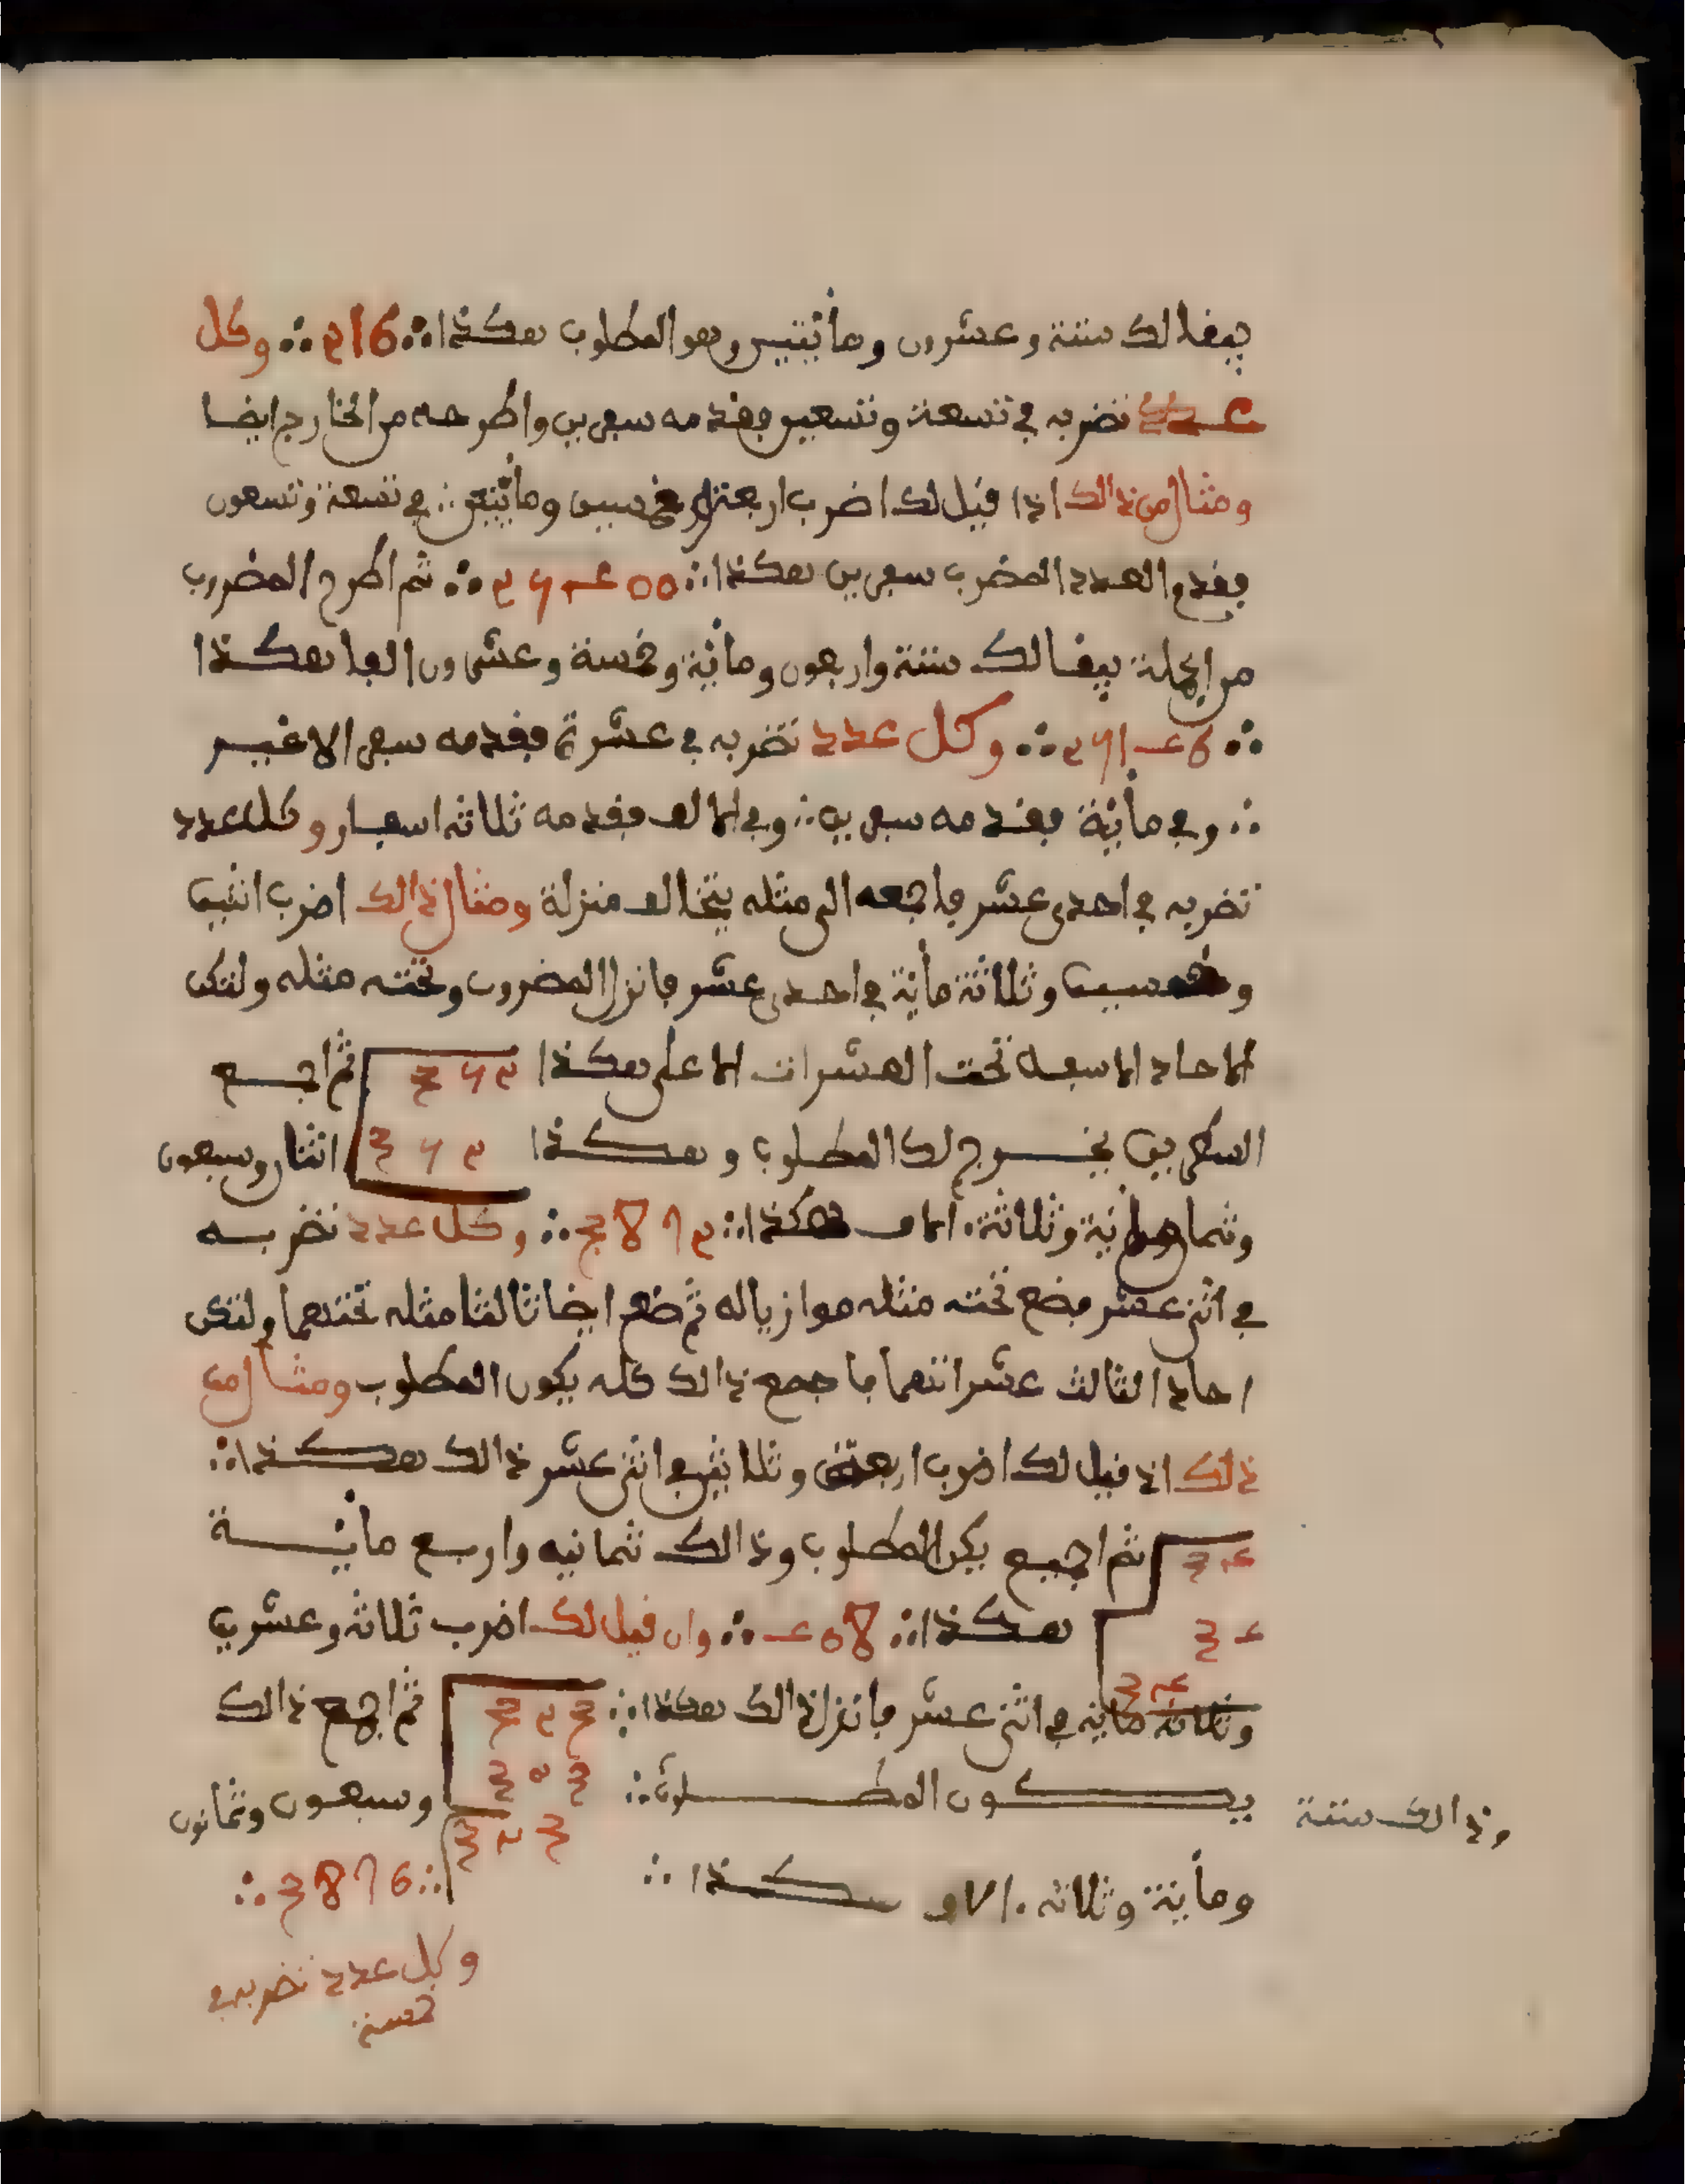 يبفا لك ستة وعشرون ومأئتين وهو المطلوب هكذا ∴ 612 ∴ وكل
عدد تضربه في تسعة وتسعين فقدمه سعرين واطرحه من الخارج ايضا
ومثال من ذالك اذا فيل لك اضرب اربعة وخمسين ومأئتين ∴ في تسعة وتسعون
فقدم العدد المضرب سعرين هكذا ∴ 00452 ∴ ثم اطرح المضروب
من الجملة يبفا لك ستة واربعون ومائة وخمسة وعشرون الفا هكذا
∴ 64152 ∴ وكل عدد تضربه في عشرة فقدمه سعر الا غير
∴ وفي مأية فقدمه سعرين ∴ وفي الالف فقدمه ثلاثه اسعار وكل عدد
تضربه في احدى عشر فاجمعه الى مثله يتخالف منزلة ومثال ذالك اضرب اثنين
وخمسين وثلاثة مأية في احدى عشر فانزل المضروب وتحته مثله ولتكن
الاحاد الاسفله تحت العشرات الاعلى هكذا 253 ثم اجمع
السطرين يخرج لك المطلوب وهكذا 253 اثنان وسبعون
وثمانمائية وثلاثة ءالاف هكذا ∴ 2783 ∴ وكل عدد تضربه
في اثنى عشر فضع تحته مثله موازيا له ثم ضع ايضا ثالثا مثله تحتهما ولتكن
احاد الثالث عشراتهما فاجمع ذالك كله يكون المطلوب ومثال من
ذلك اذ فيل لك اضرب اربعة وثلاثين في اثنى عشر ذالك هكذا ∴
43 ثم اجمع يكن المطلوب وذالك ثمانيه واربع مائة
43 هكذا ∴ 804 ∴ وان فيل لك اضرب ثلاثة وعشرين
43
وثلاثة مائه في اثنى عشر فانزل ذالك هكذا ∴ 323 ثم اجمع ذالك
يكون المطلوب ∴ 323 وذالك ستة وسبعون وثمانون
323
ومأية وثلاثه ءالاف هكذا ∴ ∴ 6783 ∴
وكل عدد تضربه في
خمسة